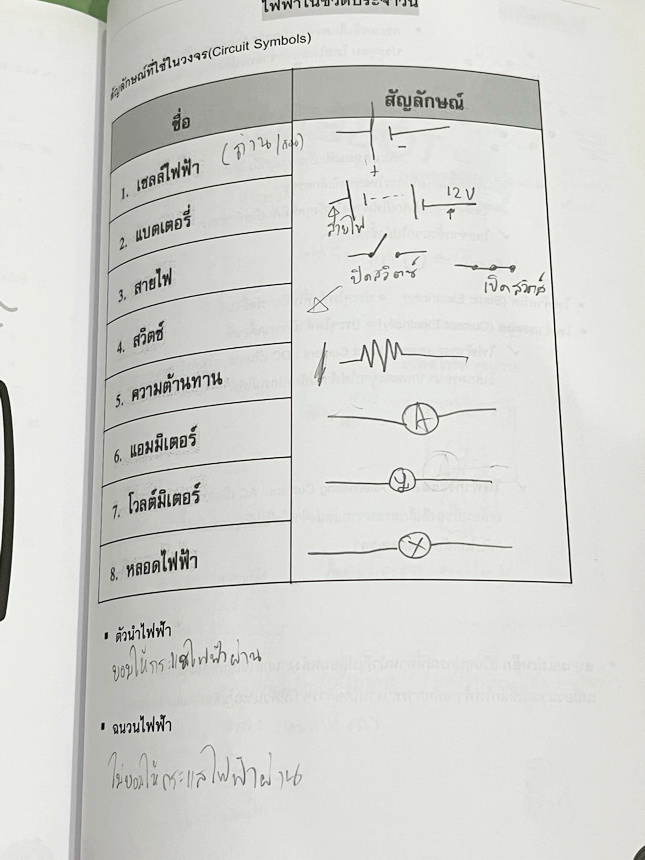 ไฟฟ้าในชีวิตประจำวัน
สัญลักษณ์ที่ใช้ในวงจร(Circuit Symbols)
ชื่อ
สัญลักษณ์
1. เซลล์ไฟฟ้า
(ถ่าน/ก้อน)
- +
2. แบตเตอรี่
12 V
สายไฟ
3. สายไฟ
ปิดสวิตซ์
เปิดสวิตซ์
4. สวิตซ์
5. ความต้านทาน
6. แอมมิเตอร์
A
7. โวลต์มิเตอร์
8. หลอดไฟฟ้า
▪ ตัวนำไฟฟ้า
ยอมให้กระแสไฟฟ้าผ่าน
▪ ฉนวนไฟฟ้า
ไม่ยอมให้กระแสไฟฟ้าผ่าน